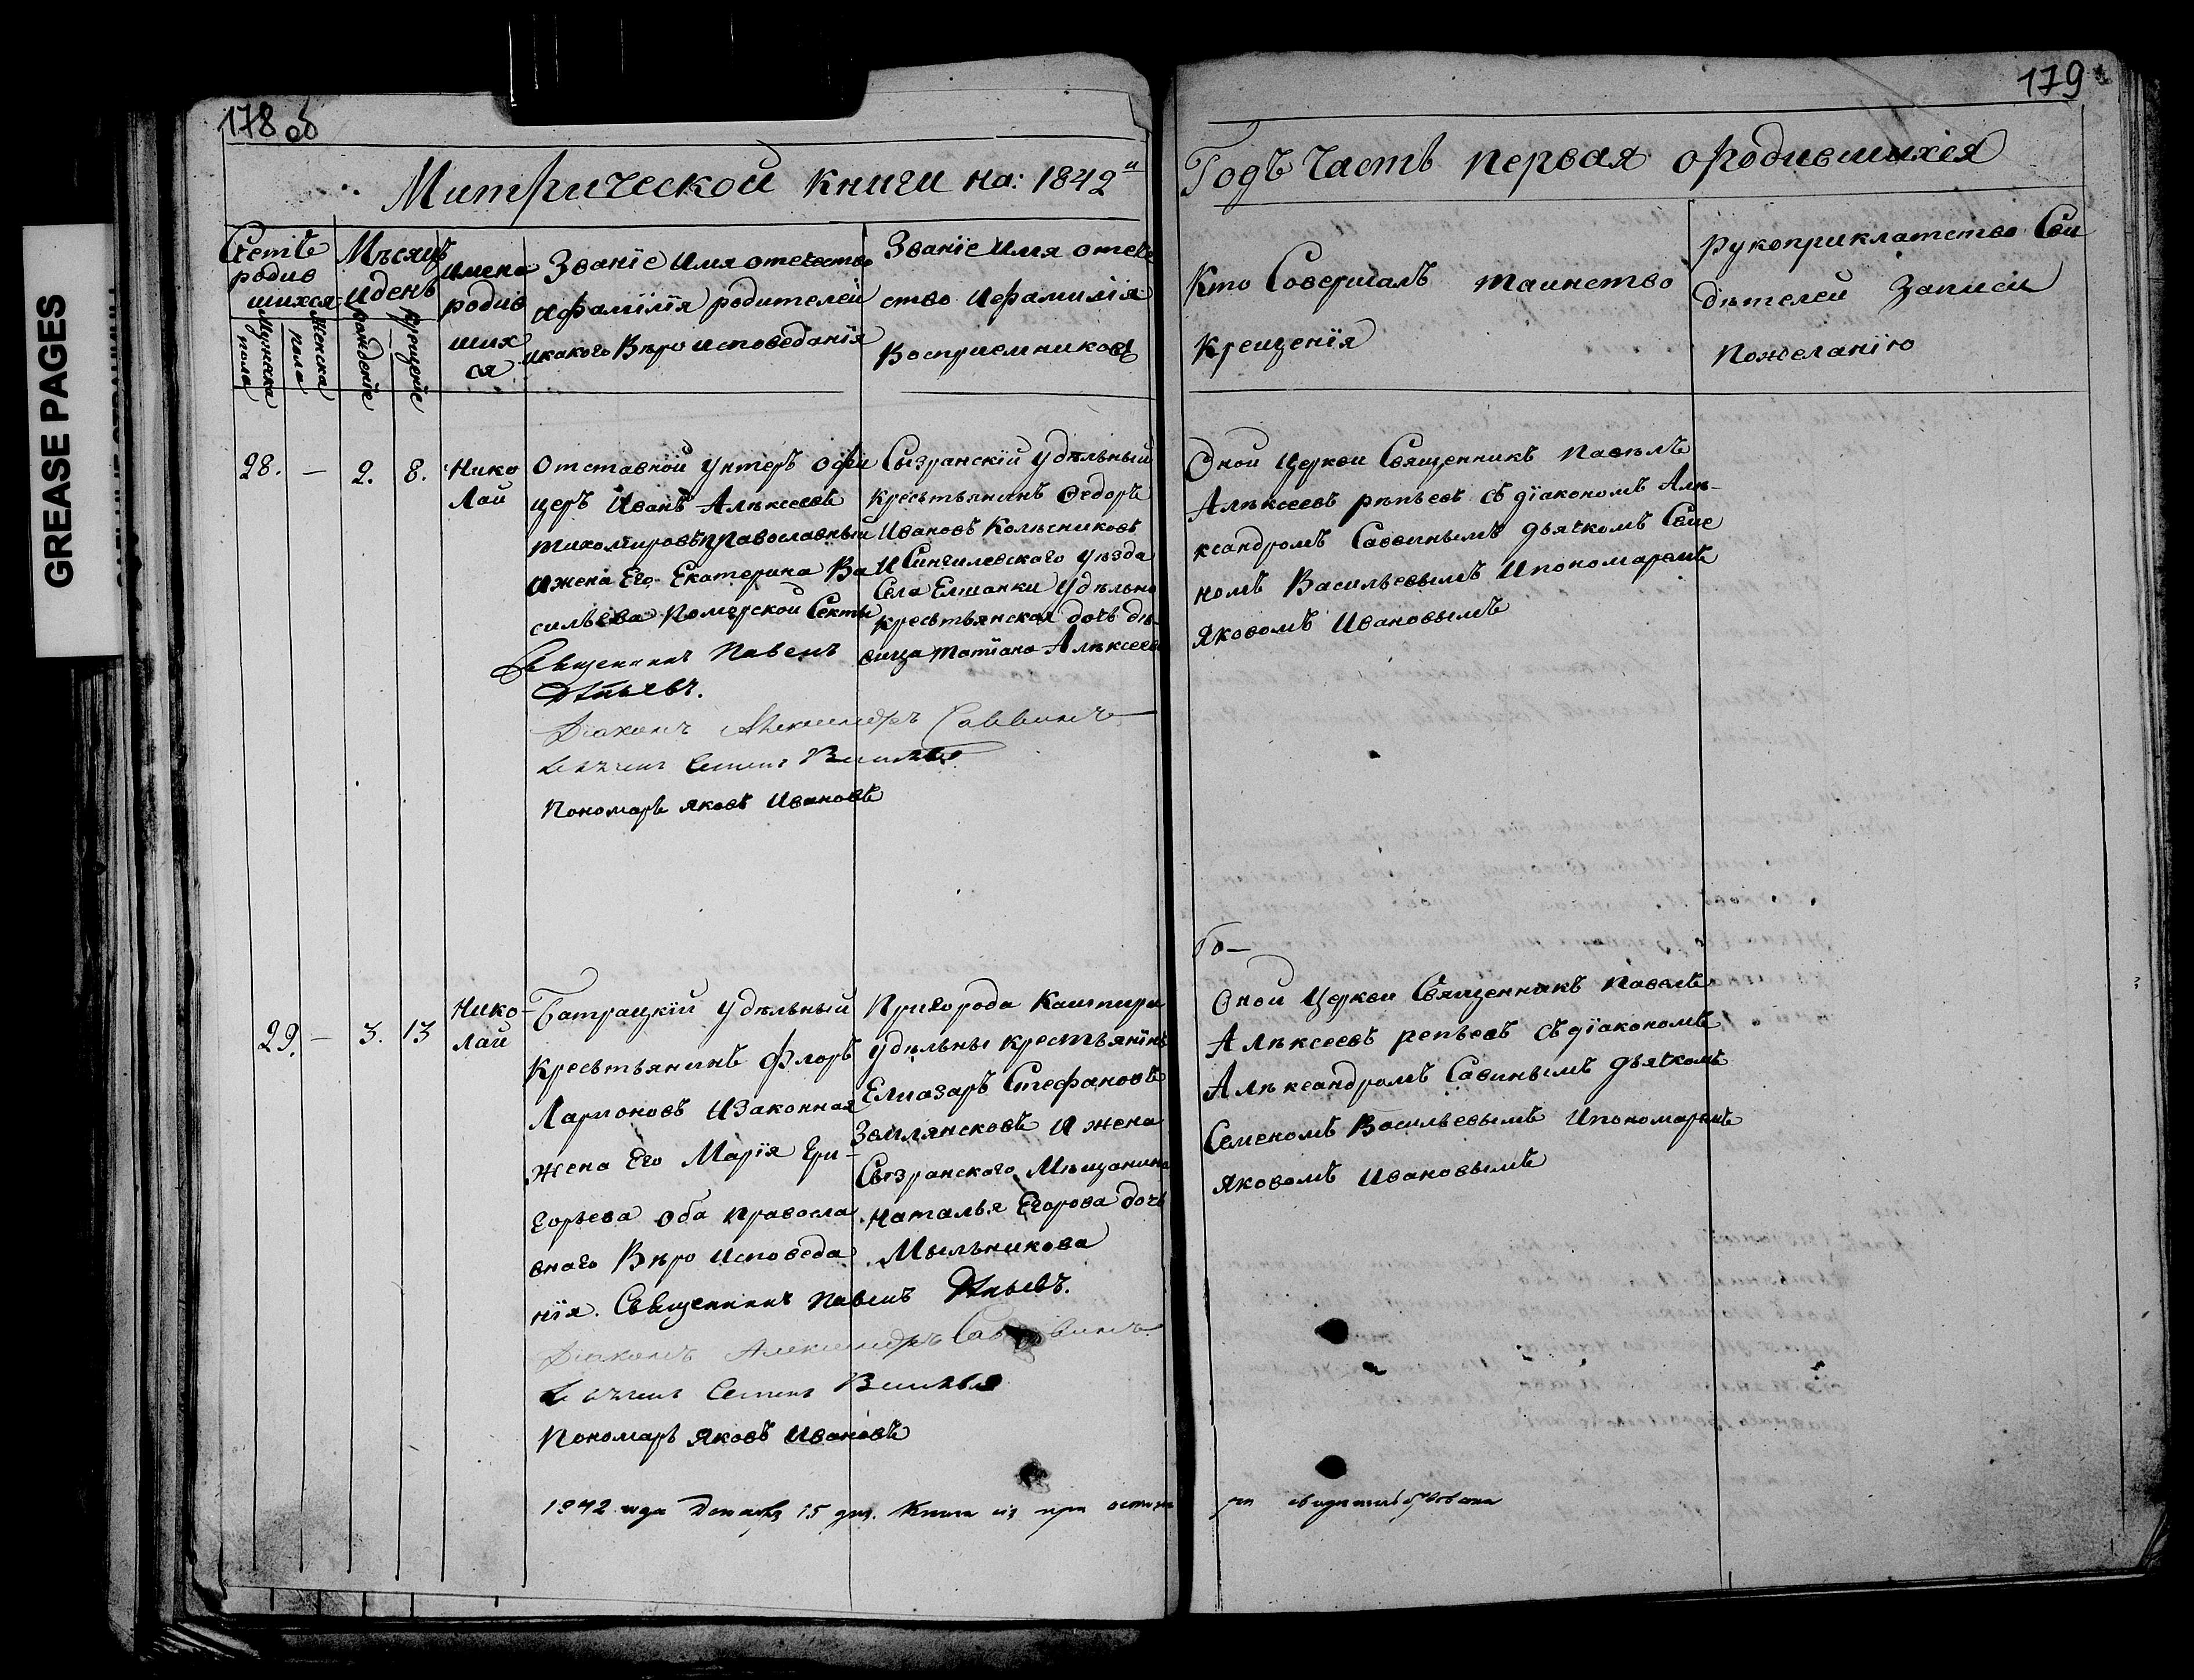 GREASE PAGES
178 об
179
Митрической книги на: 1842й
Годъ Часть первая ородившихся
Счетъ
родив
шихся
Мужеска
пола
Женска
пола
Мѣсяцъ
идень
рождение
крещение
имена
родив
ших
ся
Званїе Имя отечество
ифамилїя родителей
икакого Вѣро исповеданїя
Званїе Имя отече
ство Ифамилїя
Восприемников
Кто Совершалъ таинство
Крещенїя
рукоприклатство Сви
дѣтелей Записи
Пожеланїю
28.
—
2.
8.
Нико
лай
Отставной унтеръ офи
церъ Иванъ Алѣксеевъ
тихомировъ православный
ижена Его Екатерина Ва
сильева поморской Секты
Священникъ Павелъ
Рѣпьевъ.
Дїаконъ Александръ Саввинъ
Семенъ
Пономарь яковъ Ивановъ
Сызранскїй удѣльный
кресьтьянинъ Федоръ
Ивановъ Колѣсниковъ
И Сингилевского уѣзда
Села Елшанки удѣльно
кресьтьянская дочь дѣ
вица татїана Алѣксеев
Оной Церкви Священникъ Павѣлъ
Алѣксеевъ рѣпьевъ съ дїакономъ Алѣ-
ксандромъ Саввинымъ дьячкомъ Семе
номъ Васильевымъ Ипономаремъ
яковомъ Ивановымъ
29.
—
3.
13
Нико-
лай
Батрацкїй удѣльный
Кресьтьянинъ флоръ
Ларионовъ Изаконная
жена Его Марїя Гри-
горьева оба правосла
внаго Вѣро Исповеда
нїя. Священникъ Павелъ Рѣпьевъ.
Дїаконъ Александръ Саввинъ
Семенъ
Пономарь яковъ Ивановъ
Пригорода Кашпира
удѣльны крестьянїнъ
Елиазаръ Стефановъ
Землянсковъ И жена
Сызранского Мѣщанина
наталья Егорова дочь
Мыльникова
То—
Оной Церкви Священникъ Павелъ
Алѣксеевъ репьевъ съ дїакономъ
Алѣксандромъ Савинымъ дьячкомъ
Семеномъ Васильевымъ Ипономаремъ
яковомъ Ивановымъ
1842 года Декабря 15 дня. Книга сїя при
свидетельствована